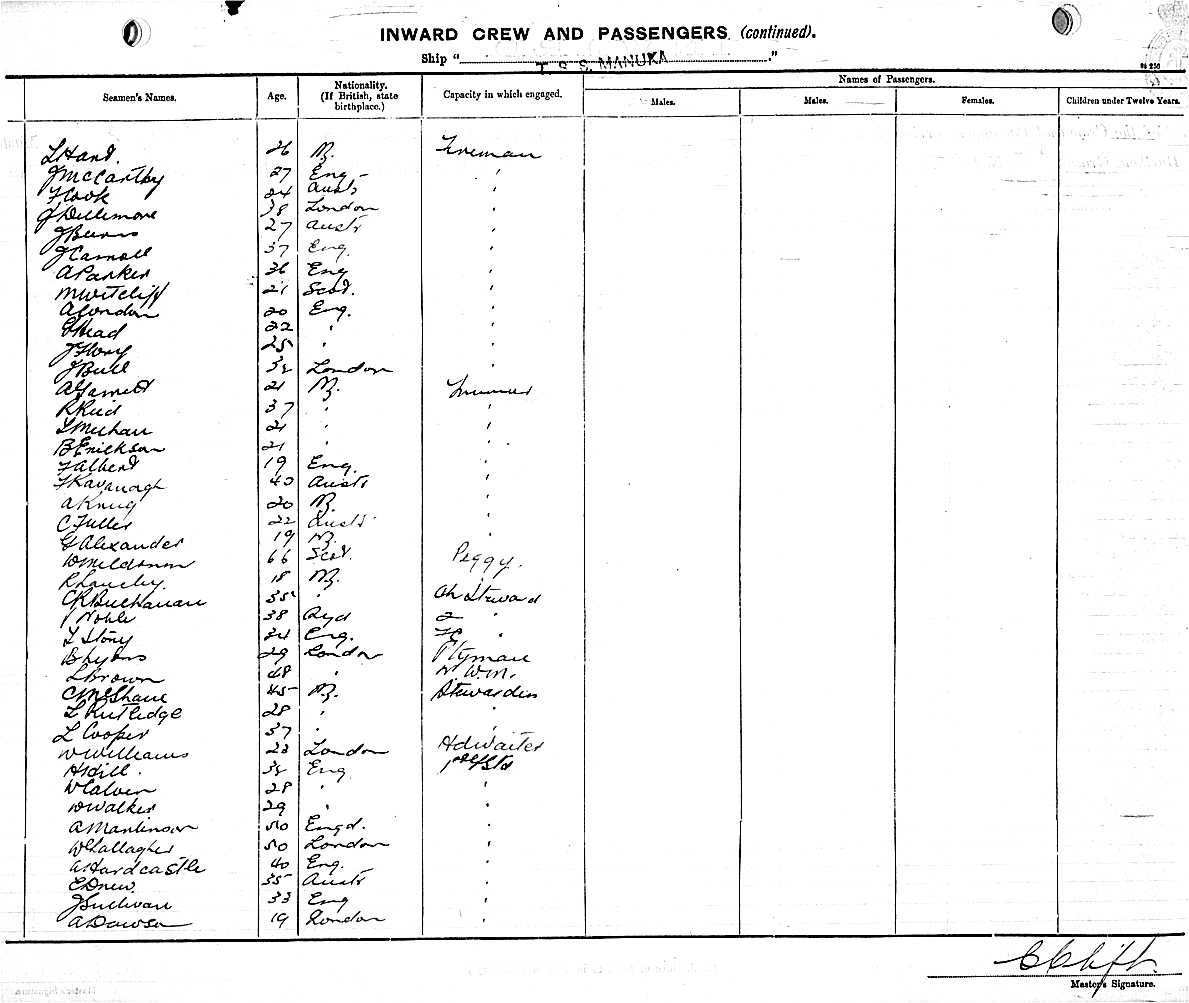 INWARD CREW AND PASSENGERS (continued).
Ship "T. S. S. MANUKA"
Names of Passengers.
Seamen's Names. Age. Nationality. (If British, state birthplace.) Capacity in which engaged. Males. Males. Females. Children under Twelve Years.
L Hand. 26 NZ. Fireman
J McCarthy 27 Eng - '
F Cook 24 Austr '
J Dellimore 38 London '
J Burns 27 Austr '
J Carnall 37 Eng. '
A Parker 36 Eng '
M Witcliff 21 Scot. '
A Condon 20 Eng. '
G Head 22 ' '
J Flory 25 ' '
J Bull 32 London '
A Garnett 21 NZ. Trimmer
R Reid 37 ' '
L Meehan 21 ' '
B Erickson 21 ' '
F Albert 19 Eng. '
F Kavanagh 40 Austr '
A Krug 20 NZ. '
C Fuller 22 Austr '
G Alexander 19 NZ. '
W 66 Scot. Peggy.
R 18 NZ. '
C R Buchanan 35 ' Ch Steward
J Noble 38 2 '
L Story 34 Eng. '
B 29 London P tyman
L Brown 48 ' N. W.M.
C McShane 45 NZ. Stewardess
L Rutledge 28 ' '
L Cooper 37 ' '
W Williams 23 London Hdwaiter
A Hill. 32 Eng
W Calver 28 ' '
W Walker 29 ' '
A Mantinson 50 Engd. '
W Gallagher 50 London '
A Hardcastle 40 Eng. '
E Drew. 35 Austr '
J Sullivan 33 Eng '
A Dawson 19 London '
C Clift.
Master's Signature.